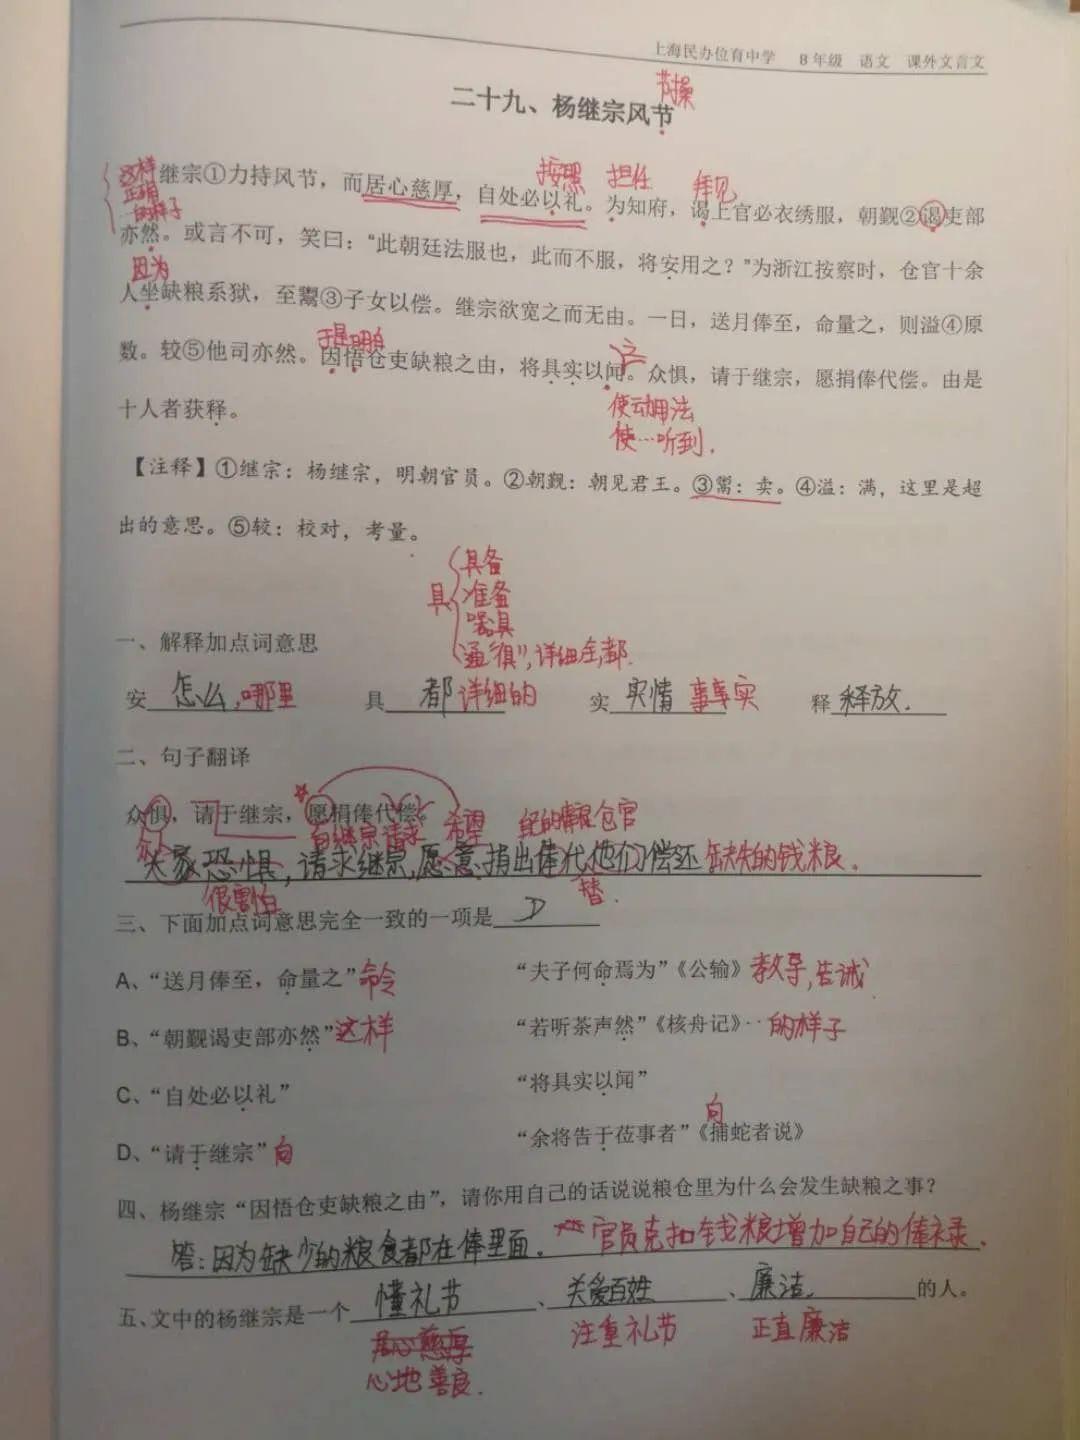 上海民办位育中学 8年级 语文 课外文言文
节操
二十九、杨继宗风节
这样 按照 担任 拜见
正确
…的样子
继宗①力持风节，而居心慈厚，自处必以礼。为知府，谒上官必衣绣服，朝觐②谒吏部
亦然。或言不可，笑曰：“此朝廷法服也，此而不服，将安用之？”为浙江按察时，仓官十余
因为
人坐缺粮系狱，至鬻③子女以偿。继宗欲宽之而无由。一日，送月俸至，命量之，则溢④原
于是 明白 之
数。较⑤他司亦然。因悟仓吏缺粮之由，将具实以闻。众惧，请于继宗，愿捐俸代偿。由是
使动用法
十人者获释。
使…听到.
【注释】①继宗：杨继宗，明朝官员。②朝觐：朝见君王。③鬻：卖。④溢：满，这里是超
出的意思。⑤较：校对，考量。
具备
具 准备
器具
通“俱”,详细全,都.
一、解释加点词意思
安 怎么,哪里 具 都 详细的 实 实情 事实 释 释放.
二、句子翻译
众惧，请于继宗，愿捐俸代偿。
向继宗请求 希望 仓官
大家恐惧,请求继宗,愿意捐出俸代他们偿还缺失的钱粮.
很害怕 替.
三、下面加点词意思完全一致的一项是 D
A、“送月俸至，命量之” 命令 “夫子何命焉为”《公输》 教导,告诫
B、“朝觐谒吏部亦然” 这样 “若听茶声然”《核舟记》 …的样子
C、“自处必以礼” “将具实以闻”
向
D、“请于继宗” 向 “余将告于莅事者”《捕蛇者说》
四、杨继宗“因悟仓吏缺粮之由”，请你用自己的话说说粮仓里为什么会发生缺粮之事？
答:因为缺少的粮食都在俸里面. 官员克扣钱粮增加自己的俸禄.
五、文中的杨继宗是一个 懂礼节 、 关爱百姓 、 廉洁. 的人。
居心慈厚 注重礼节 正直廉洁
心地善良.